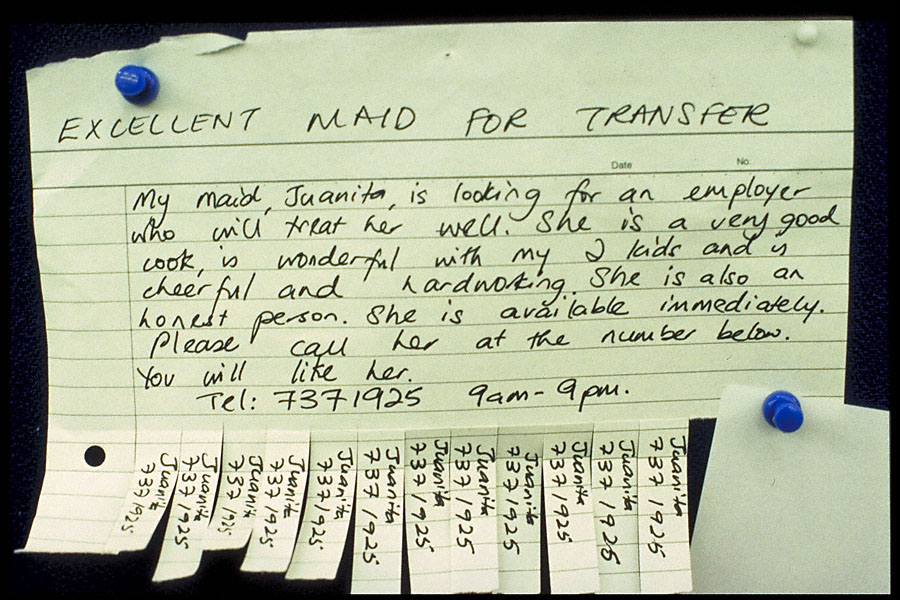 EXCELLENT MAID FOR TRANSFER
Date No.
My maid, Juanita, is looking for an employer
who will treat her well. She is a very good
cook, is wonderful with my 2 kids and is
cheerful and hardworking. She is also an
honest person. She is available immediately.
Please call her at the number below.
You will like her.
Tel: 7371925 9am - 9pm.
Juanita
7371925
Juanita
7371925
Juanita
7371925
Juanita
7371925
Juanita
7371925
Juanita
7371925
Juanita
7371925
Juanita
7371925
Juanita
7371925
Juanita
7371925
Juanita
7371925
Juanita
7371925